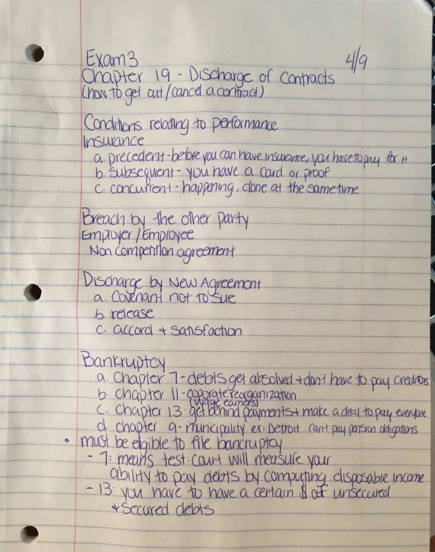 Exam 3 4/9
Chapter 19 - Discharge of Contracts
(how to get out/cancel a contract)
Conditions relating to performance
Insurance
a. precedent - before you can have insurance, you have to pay for it
b. subsequent - you have a card or proof
c. concurrent - happening, done at the same time
Breach by the other party
Employer/Employee
Non competition agreement
Discharge by New Agreement
a. Covenant not to sue
b. release
c. accord + satisfaction
Bankruptcy
a. chapter 7 - debts get absolved + don't have to pay creditors
b. chapter 11 - corporate reorganization
(wage earners)
c. chapter 13: get behind payments + make a deal to pay everyone
d. chapter 9 - municipality ex: Detroit can't pay pension obligations
• must be eligible to file bancruptcy
- 7: means test: court will measure your
ability to pay debts by computing disposable income
- 13: you have to have a certain $ of unsecured
+ secured debts